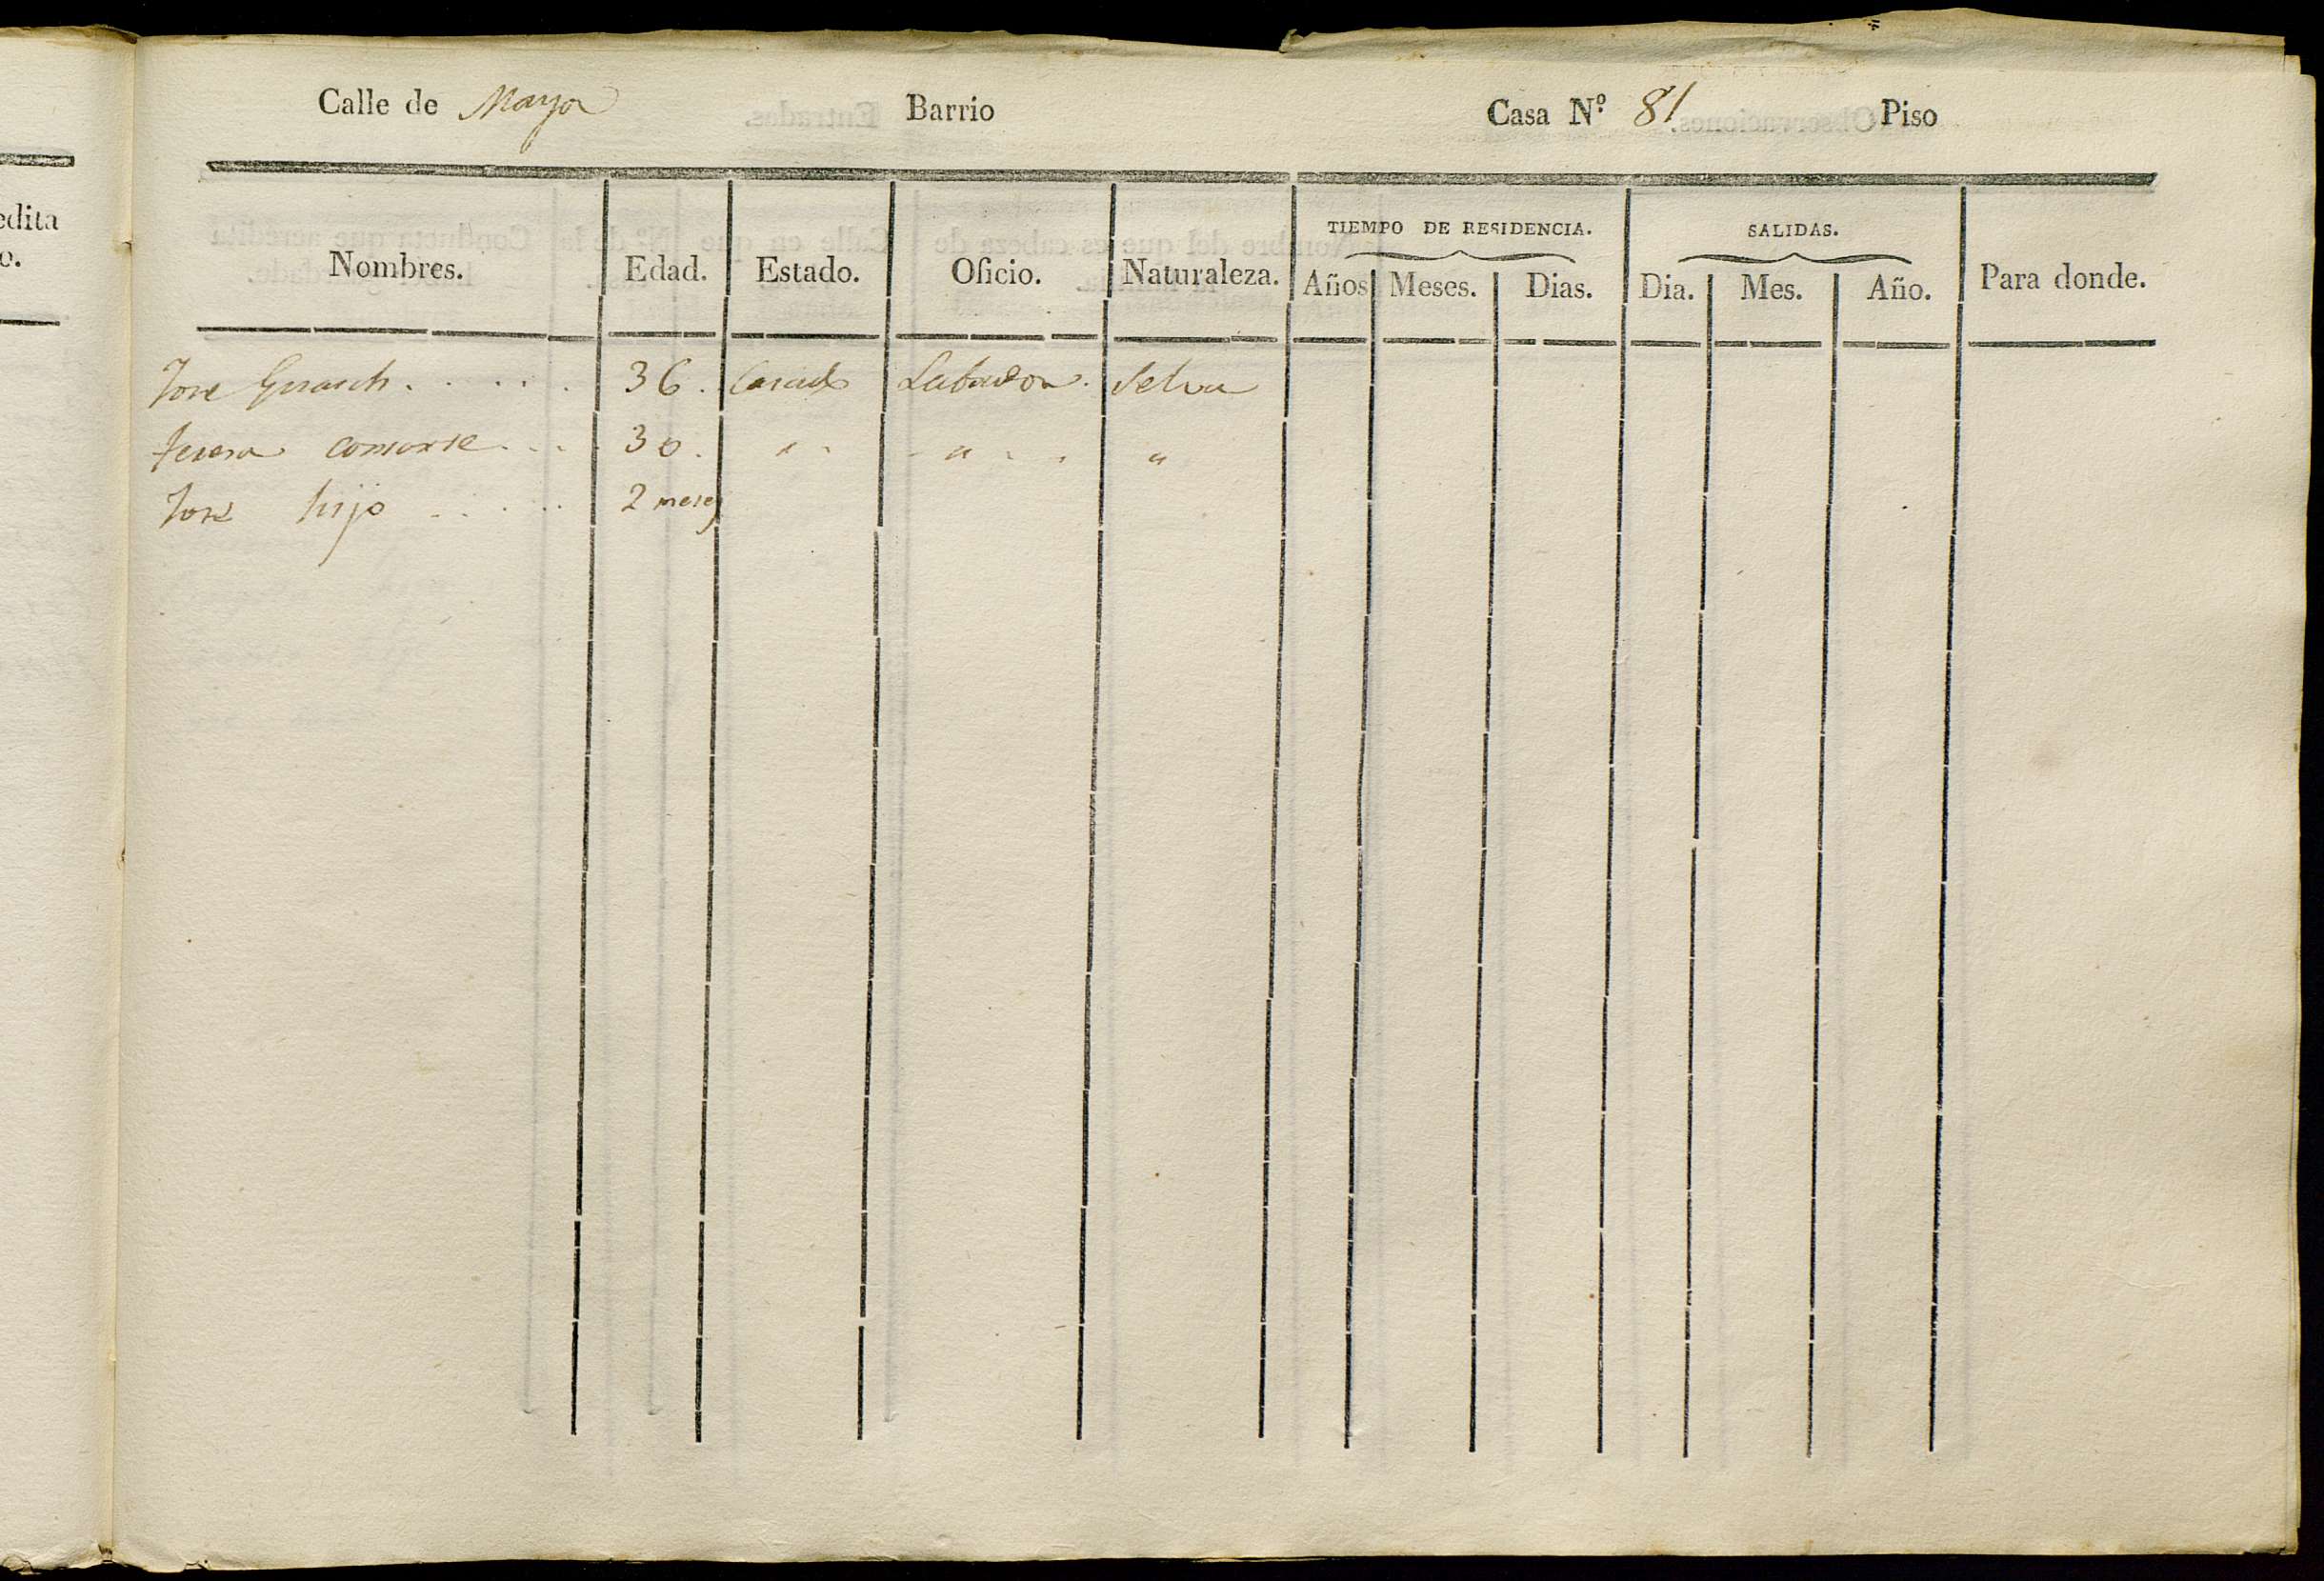 Calle de Mayor Barrio Casa N.º 81 Piso
edita
o.
TIEMPO DE RESIDENCIA. SALIDAS.
Nombres. Edad. Estado. Oficio. Naturaleza. Años Meses. Dias. Dia. Mes. Año. Para donde.
Jose . . . . . 36. Casado Labrador. Selva
Teresa consorte . . . 30. " . . " . . "
Jose hijo . . . . . 2 meses